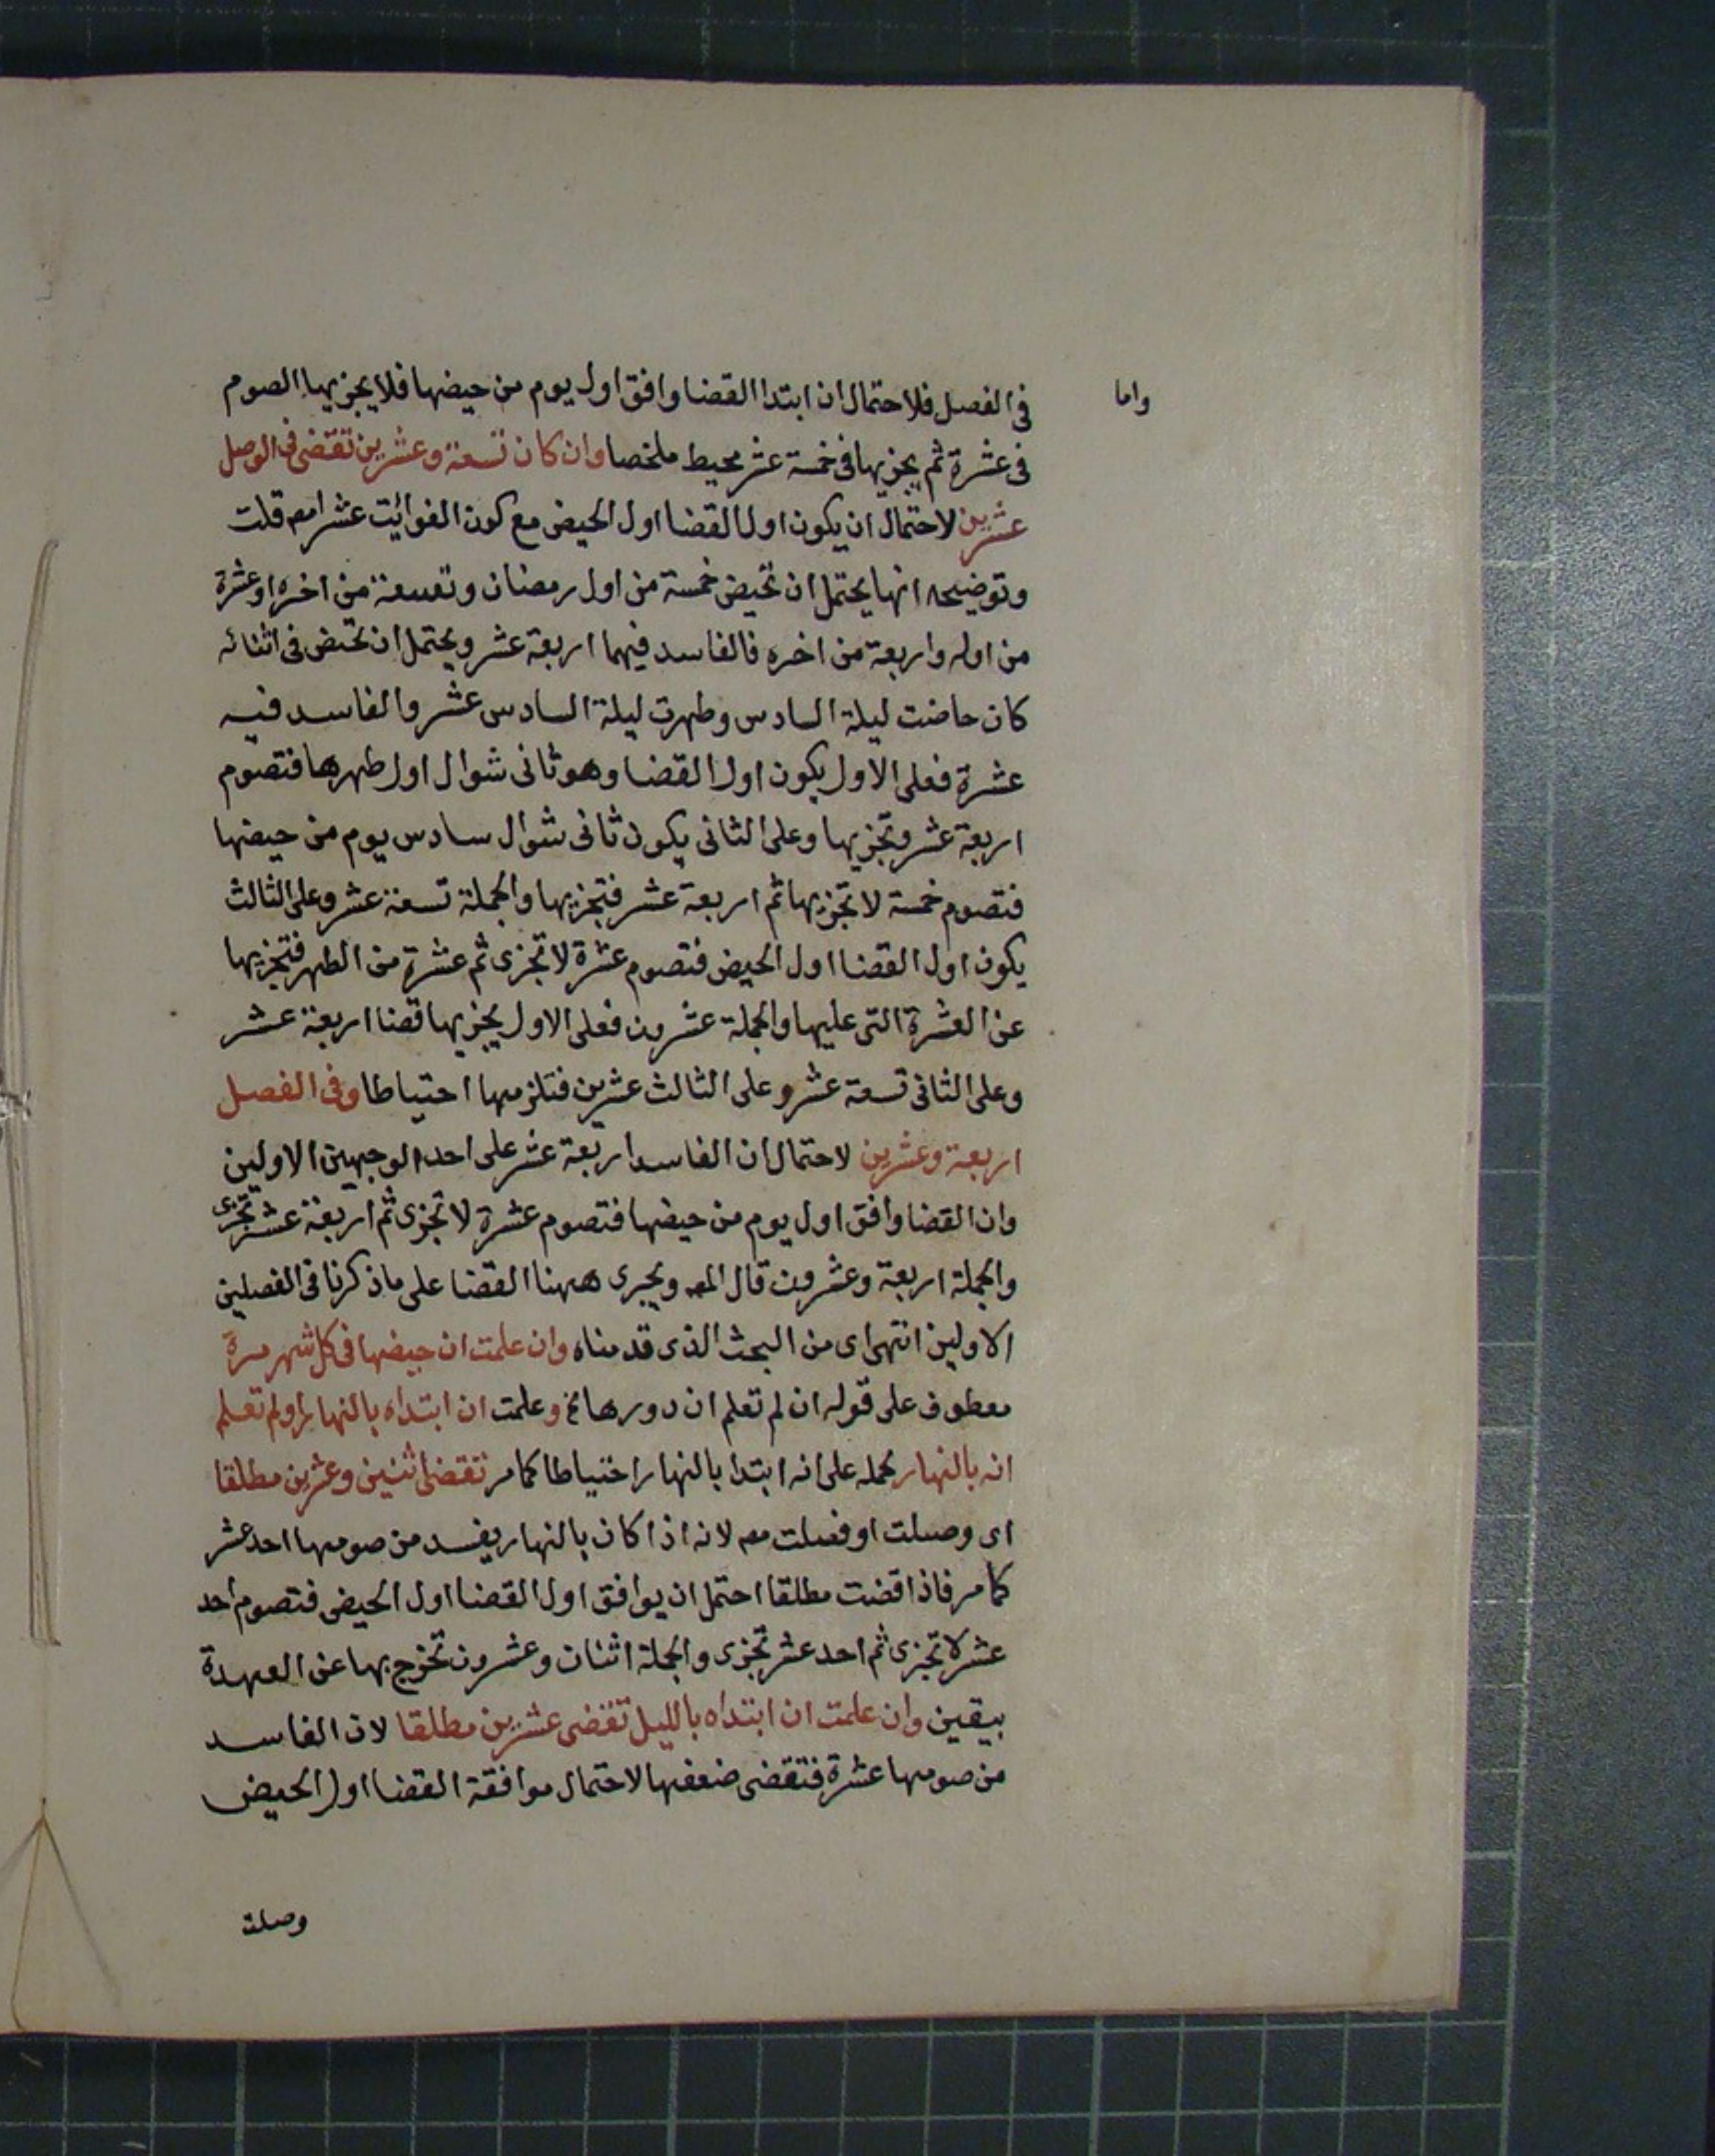 واما
فى الفصل فلاحتمال ان ابتدا القضا وافق اول يوم من حيضها فلا يجزيها الصوم
فى عشرة ثم يجزيها فى خمسة عشر محيط ملخصا وان كان تسعة وعشرين تقضى فى الوصل
عشرين لاحتمال ان يكون اول القضا اول الحيض مع كون الفوائت عشرا مصـ قلت
وتوضيحه انها يحتمل ان تحيض خمسة من اول رمضان وتسعة من اخره او عشرة
من اوله واربعة من اخره فالفاسد فيهما اربعة عشر ويحتمل ان تحيض فى اثنائه
كان حاضت ليلة السادس وطهرت ليلة السادس عشر والفاسد فيه
عشرة فعلى الاول يكون اول القضا وهو ثانى شوال اول طهرها فتصوم
اربعة عشر وتجزيها وعلى الثانى يكون ثانى شوال سادس يوم من حيضها
فتصوم خمسة لا تجزيها ثم اربعة عشر فتجزيها والجملة تسعة عشر وعلى الثالث
يكون اول القضا اول الحيض فتصوم عشرة لا تجزى ثم عشرة من الطهر فتجزيها
عن العشرة التى عليها والجملة عشرون فعلى الاول يجزيها قضا اربعة عشر
وعلى الثانى تسعة عشر وعلى الثالث عشرين فتلزمها احتياطا وفى الفصل
اربعة وعشرين لاحتمال ان الفاسد اربعة عشر على احد الوجهين الاولين
وان القضا وافق اول يوم من حيضها فتصوم عشرة لا تجزى ثم اربعة عشر تجزى
والجملة اربعة وعشرون قال المصـ ويجرى ههنا القضا على ماذكرنا فى الفصلين
الاولين انتهى اى من البحث الذى قدمناه وان علمت ان حيضها فى كل شهر مرة
معطوف على قوله ان لم تعلم ان دورها الخ وعلمت ان ابتداه بالنهار او لم تعلم
انه بالنهار يحمله على انه ابتدا بالنهار احتياطا كما مر تقضى اثنين وعشرين مطلقا
اى وصلت او فصلت مصـ لانه اذا كان بالنهار يفسد من صومها احد عشر
كما مر فاذا قضت مطلقا احتمل ان يوافق اول القضا اول الحيض فتصوم احد
عشر لا تجزى ثم احد عشر تجزى والجملة اثنان وعشرون تخرج بها عن العهدة
بيقين وان علمت ان ابتداه بالليل تقضى عشرين مطلقا لان الفاسد
من صومها عشرة فتقضى ضعفها لاحتمال موافقة القضا اول الحيض
وصلت